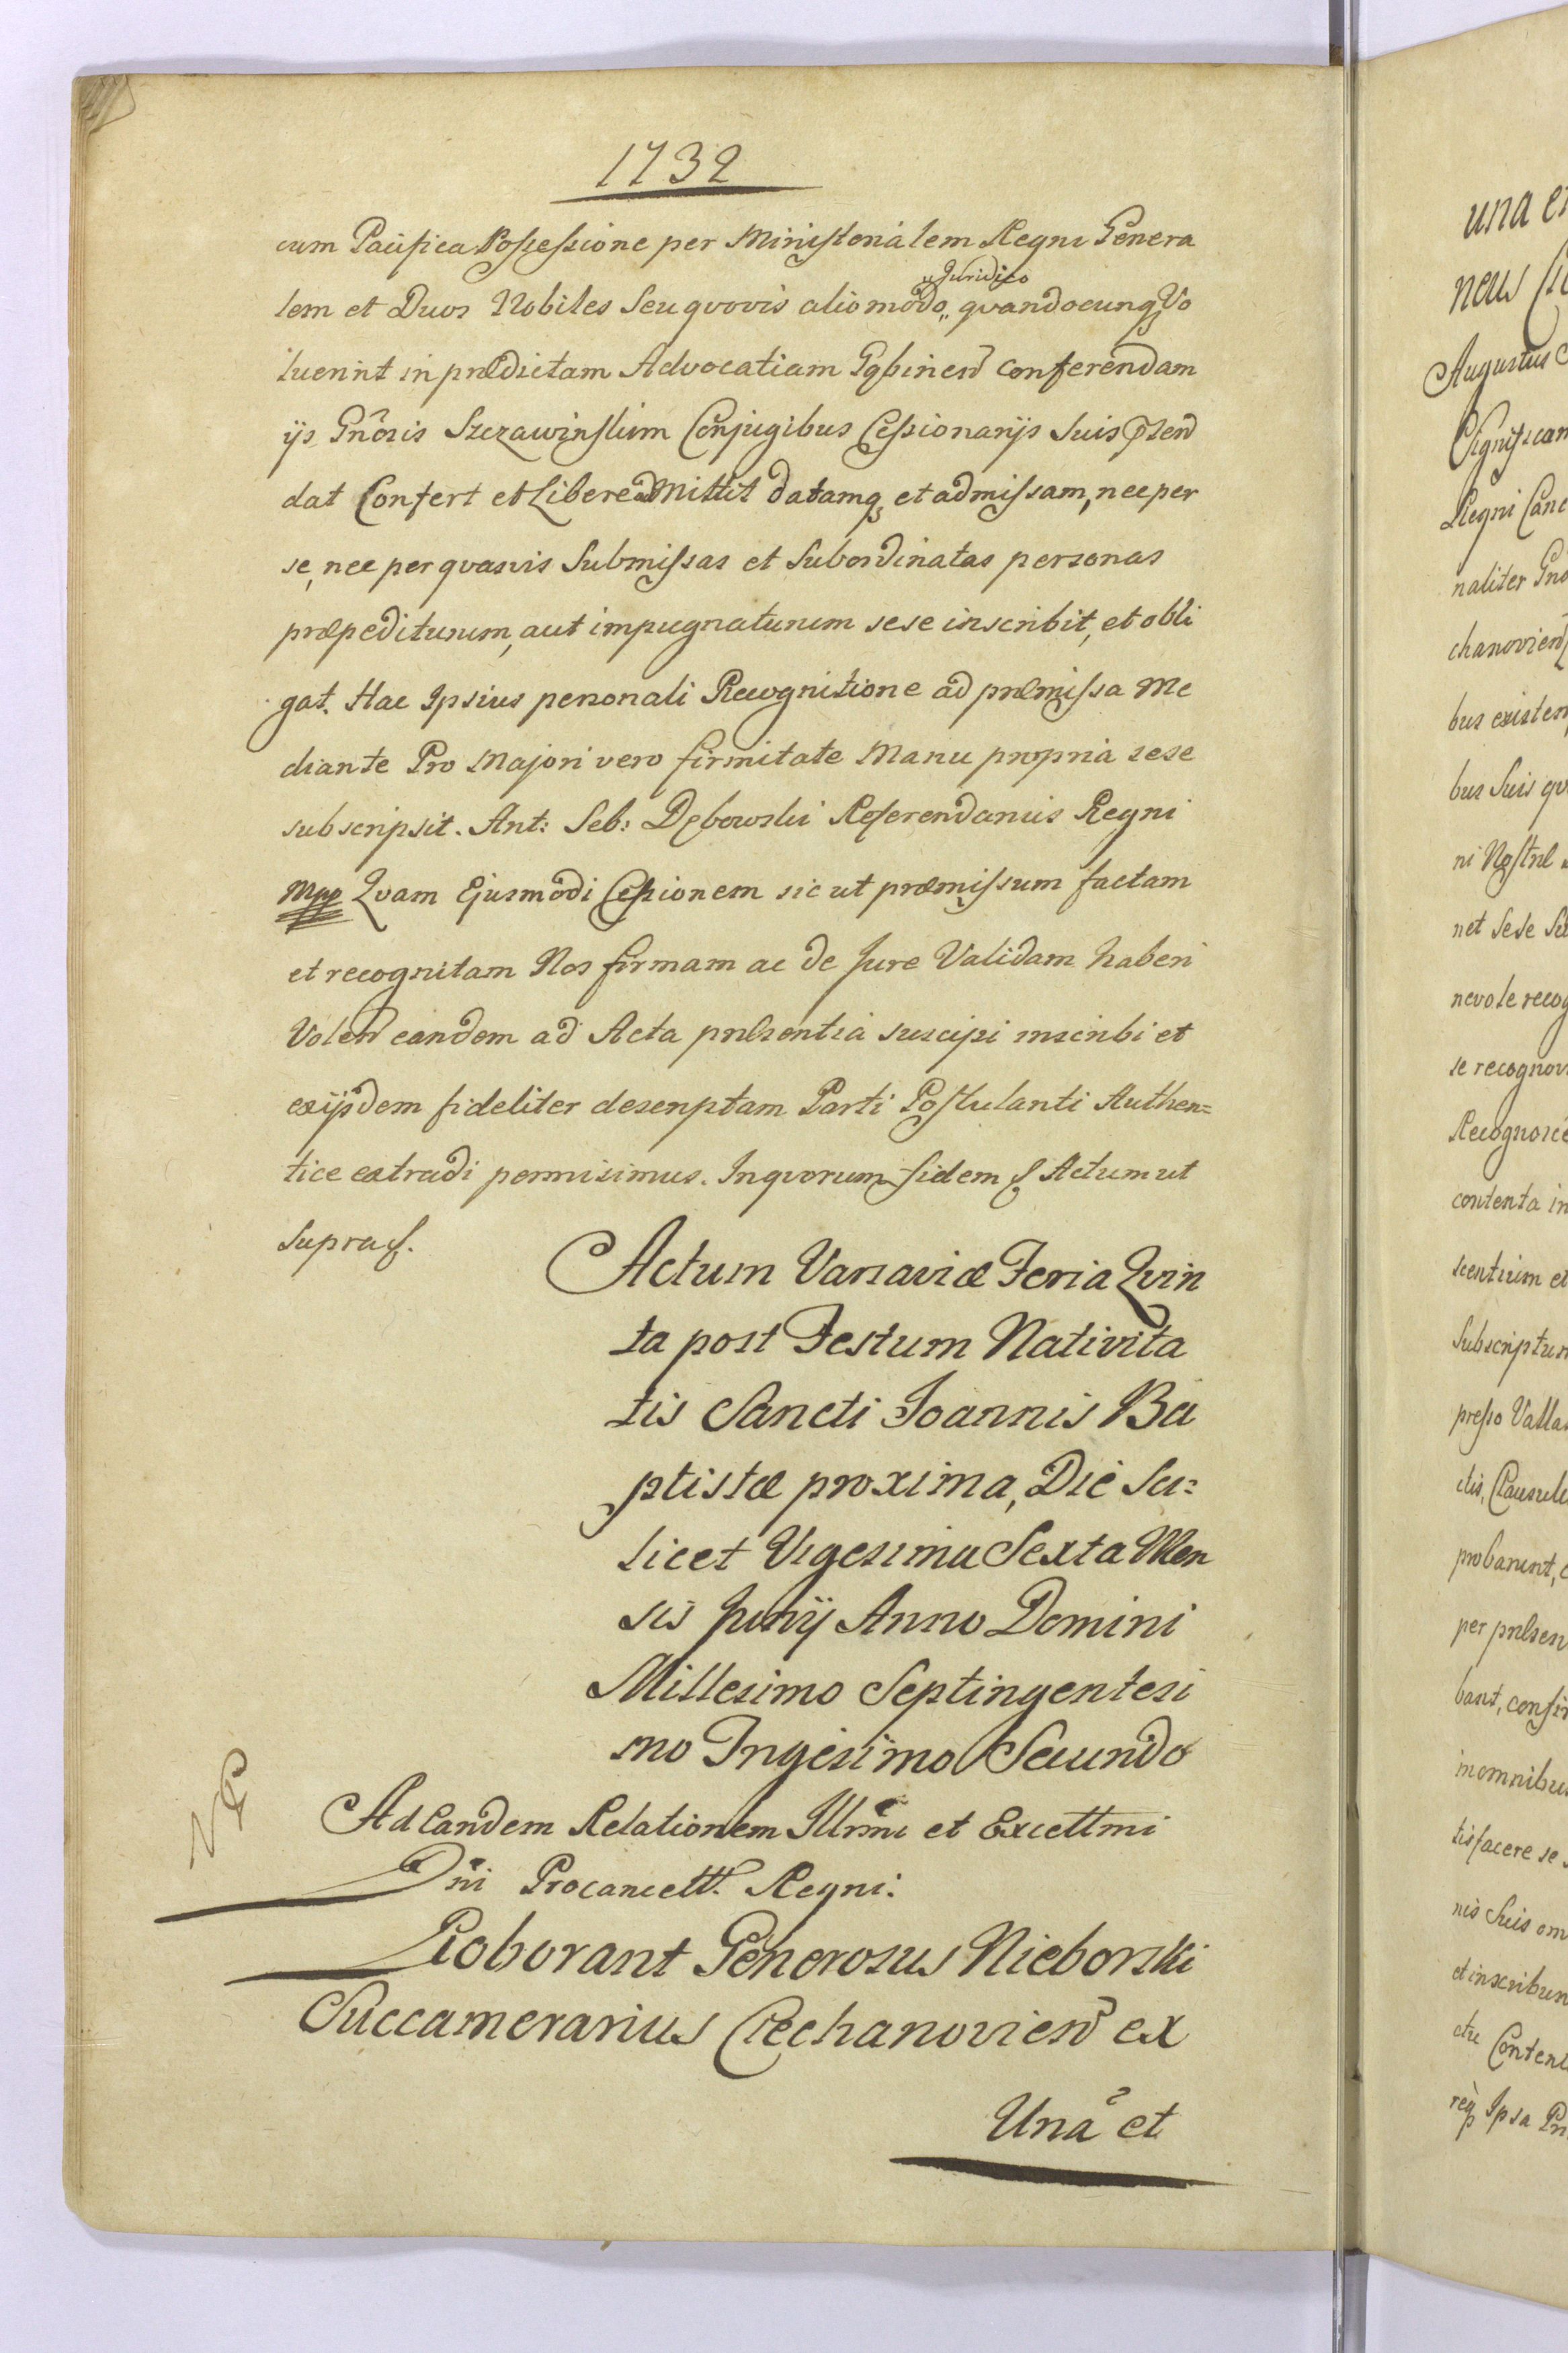 1732
cum Pacifica Possessione per Ministerialem Regni Genera
lem et Duos Nobiles Seu qvovis alio modo „Juridico qvandocunq Vo
luerint in prædictam Advocatiam Gąbinen conferendam
ijs Gnosis Szczawinskim Conjugibus Cessionarijs Suis
dat Confert et Libere admittit datamq et admissam, nec per
se, nec per qvasvis Submissas et Subordinatas personas
præpediturum, aut impugnaturum sese inscribit, et obli
gat. Hac Ipsius personali Recognitione ad præmissa Me
diante Pro Majori vero firmitate Manu propria sese
subscripsit. Ant: Seb: Dębowski Referendarius Regni
Mpp Qvam Ejusmodi Cessionem sic ut præmissum factam
et recognitam Nos firmam ac de Jure Validam haberi
Volen eandem ad Acta præsentia suscipi inscribi et
exijsdem fideliter descriptam Parti Postulanti Authen=
tice extradi permisimus. Inqvorum fidem Actum ut
Supra
Actum Varsaviæ Feria Qvin
ta post Festum Nativita
tis Sancti Joannis Ba
ptistæ proxima, Die Sci=
licet Vigesima Sexta Men
sis Junij Anno Domini
Millesimo Septingentesi
mo Trigesimo Secundo
Ad Eandem Relationem Illrmi et Excellmi
Dni Procancell. Regni.
Roborant Generosus Nieborski
Succamerarius Ciechanovien ex
Una et
una e
neus
Augustus
Significam
Regni Canc
naliter Gno
chanovien
bus existen
bus Suis qv
ni Nostræ
net Sese Su
nevole recog
se recognov
Recognosce
contenta in
scentium et
Subscriptum
presso Valla
ctis, Clausuli
probarunt, c
per præsen
bant, confir
inomnibus
tisfacere se
nis Suis om
et inscribun
ctu Content
req Ipsa Pr